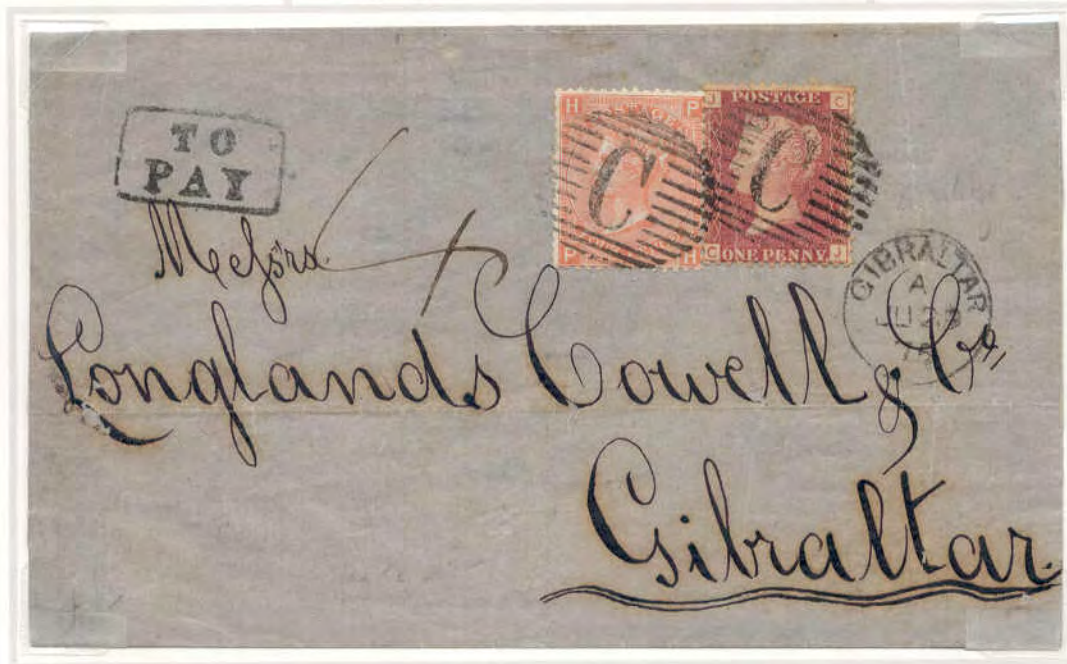 TO
PAY
H P
P H
J POSTAGE C
C ONE PENNY J
C C
GIBRALTAR
A
JU 23
Messrs
4
Longlands Cowell & Co,
Gibraltar.